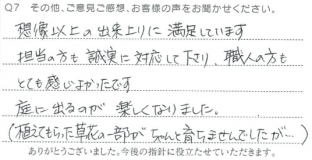 Q7 その他、ご意見ご感想、お客様の声をお聞かせください。
想像以上の出来上りに満足しています
担当の方も誠実に対応して下り、職人の方も
とても感じよかったです
庭に出るのが楽しくなりました。
(植えてもらった草花の一部がちゃんと育ちませんでしたが…)
ありがとうございました。今後の指針に役立たせていただきます。